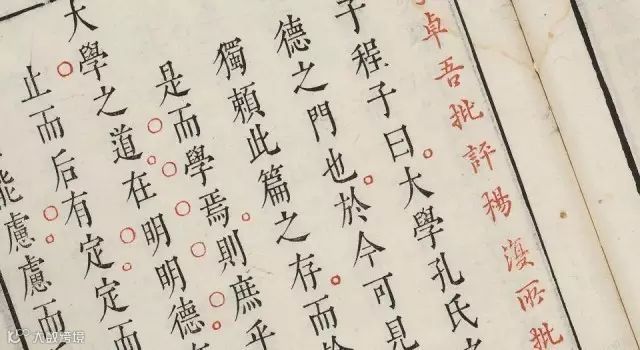 卓吾批評楊復所批
子程子曰大學孔氏
德之門也於今可見
獨賴此篇之存而
是而學焉則庶乎
大學之道在明明德
止而后有定定而
能慮慮而
大数跨境